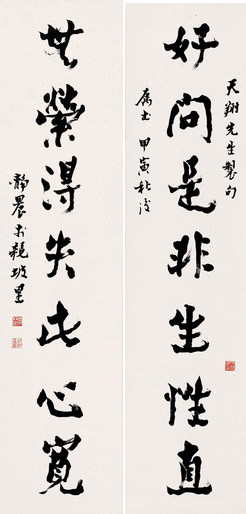 天翔先生製句
好問是非生性直
屬書 甲寅秋
無縈得失此心寬
靜農於龍坡里